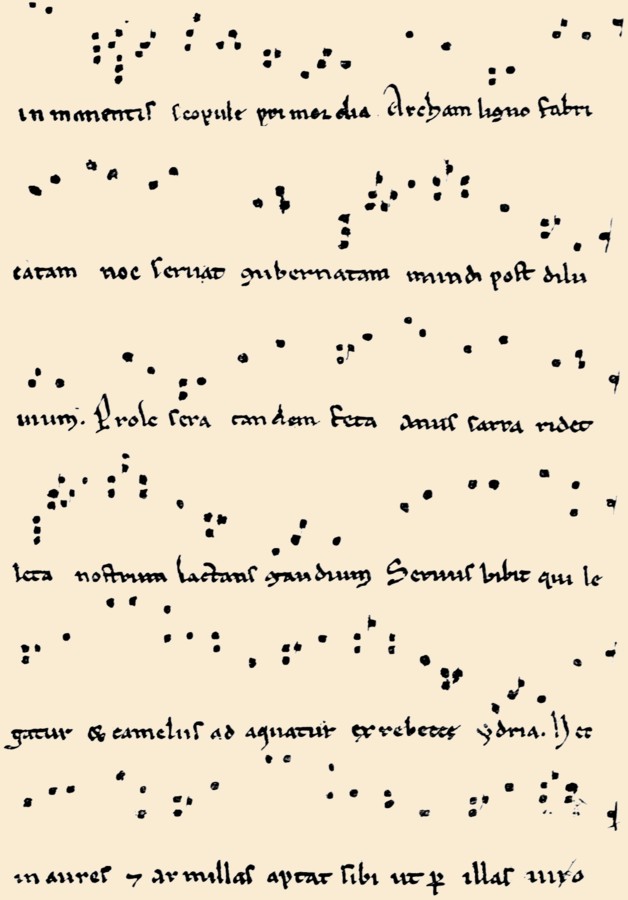 in manentis scopule primordia Archam ligno fabri
catam noe seruat gubernatam mundi post dilu
uium. Prole sera tandem feta anus sarra ridet
leta nostrum lactans gaudium Seruus bibit qui le
gatur & camelus ad aquatur ex rebecce ydria. Hec
in aures ⁊ armillas aptat sibi ut ꝑ illas uiro